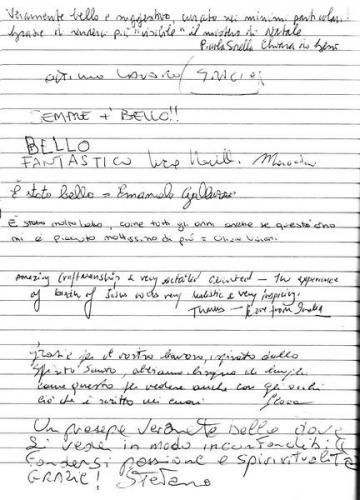 Veramente bello e suggestivo, curato nei minimi particolari.
Grazie di renderci più "visibile" il mistero di Natale
Piccola Sorella Chiara
Ottimo lavoro! Grazie
SEMPRE + BELLO!!
BELLO
FANTASTICO
È stato bello = Emanuele
È stato molto bello, come tutti gli anni anche se quest'anno
mi è piaciuto moltissimo di più =
Amazing craftmanship & very detailed - The experience
of birth of Jesus was very realistic & very inspiring.
Thanks - from India
Grazie per il vostro lavoro, ispirato dallo
Spirito Santo, abbiamo bisogno di
come questo per vedere anche con gli occhi
ciò che è scritto nei cuori
Un presepe veramente bello dove
si vede in modo incontendibile
fondersi passione e spiritualità
GRAZIE! Stefano